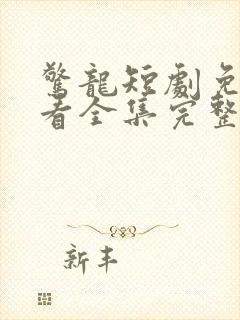 驚龍短劇免
看全集完整
新丰